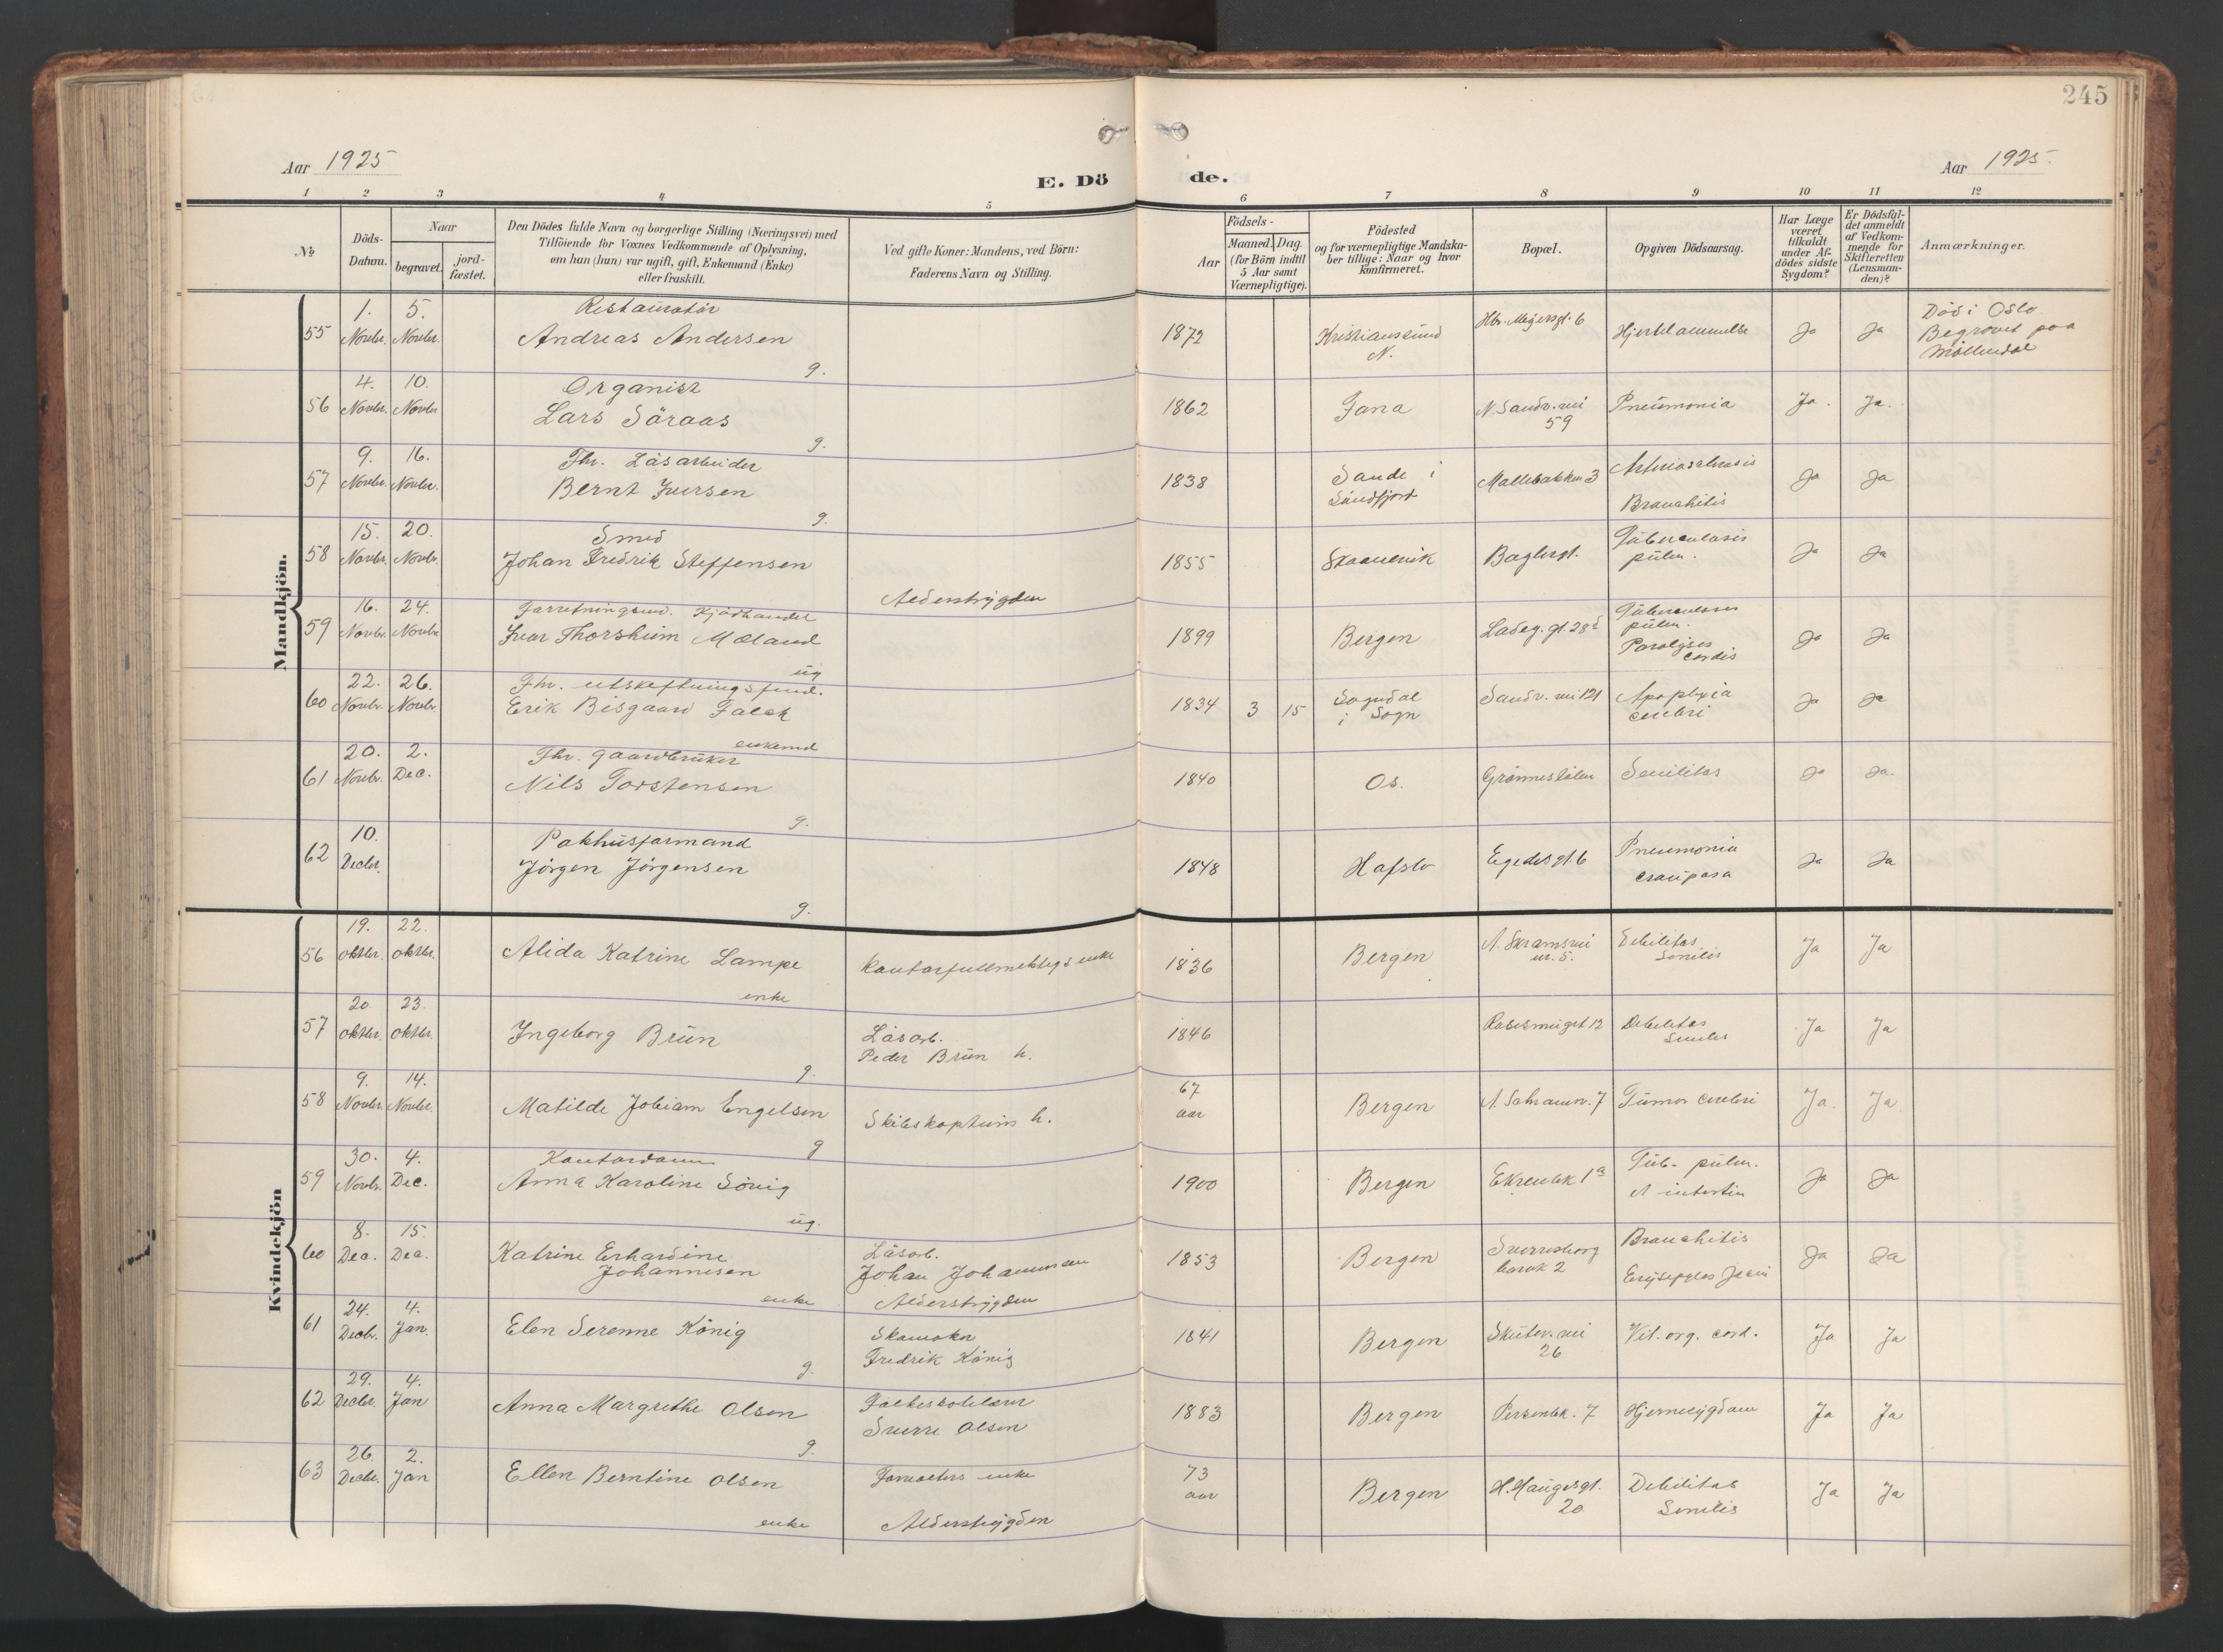 245
Aar 1925
Aar 1925.
E. Dö de.
1 2 3 4 5 6 7 8 9 10 11 12
No
Döds-Datum.
Naar
begravet.
jord-fæstet.
Den Dödes fulde Navn og borgerlige Stilling (Næringsvei) med
Tilföiende for Voxnes Vedkommende af Oplysning,
om han (hun) var ugift, gift, Enkemand (Enke)
eller fraskilt.
Ved gifte Koner: Mandens, ved Börn:
Faderens Navn og Stilling.
Födsels-
Aar
Maaned. Dag.
(for Börn indtil
5 Aar samt
Værnepligtige).
Födested
og for værnepligtige Mandska-
ber tillige: Naar og hvor
konfirmeret.
Bopæl.
Opgiven Dödsaarsag.
Har Læge
været
tilkaldt
under Af-
dödes sidste
Sygdom?
Er Dödsfal-
det anmeldt
af Vedkom-
mende for
Skifteretten
(Lensman-
den)?
Anmærkninger.
Mandkjön.
55 1. Novbr. 5. Novbr. Restauratör
Andreas Andersen
g.
1872 Kristianssund
N.
Hjertelammelse Ja Ja Död i Oslo
Begravet paa
Möllendal
56 4. Novbr. 10. Novbr Organist
Lars Söraas
g.
1862 Fana N. Sandv.vei
59
Pneumonia Ja. Ja.
57 9. Novbr. 16. Novbr. Fhr. Läsarbeider
Bernt Iversen
g.
1838 Sande i
Söndfjord
Mallebakken 3
Bronchitis
Ja Ja
58 15. Novbr. 20. Novbr. Smed
Johan Fredrik Steffensen
Alderstrygden
1855 Skaanevik Baglergt. Tuberculosis
pulm.
Ja Ja
59 16. Novbr. 24. Novbr. Kjödhandel
Ivar Thorsheim Mæland
ug
1899 Bergen Ladeg. gt. 28 Tuberculosis
pulm.
Paralyses
cordis
Ja Ja
60 22. Novbr. 26. Novbr. Fhr. utskiftningsfuld.
Erik Bisgaard Falch
enkemd
1834 3 15 Sogndal
i Sogn
Sandv. vei 121 Apoplexia
cerebri
Ja Ja
61 20. Novbr. 2. Dec. Fhr. gaardbruker
Nils Torstensen
g.
1840 Os. Senilitas Ja Ja.
62 10. Decbr. Pakhusformand
Jörgen Jörgensen
g.
1848 Hafslo Egedesgt. 6 Pneumonia
crouposa
Ja Ja
Kvindekjön
56 19. Oktbr. 22. Oktbr. Alida Katrine Lampe
enke
Kontorfullmektigs enke 1836 Bergen A. Skramsvei
nr. 5.
Debilitas
Senilis
Ja Ja
57 20. Oktbr. 23. Oktbr. Ingeborg Brun
g.
Läsarb.
Peder Brun h.
1846 Rosesmuget 12 Debilitas
Senilis
Ja Ja
58 9. Novbr. 14. Novbr. Matilde Engelsen
g
Skibskaptuins h.
67
aar
Bergen Tumor cerebri Ja. Ja
59 30. Novbr. 4. Dec. Kontordame
Anna Karoline
ug.
1900 Bergen Ekrenbk 1a Tub. pulm.
Ja Ja
60 8. Dec. 15. Dec. Katrine Erhardine
Johannesen
enke
Läsarb.
Johan Johannesen
Alderstrygden
1853 Bergen Sverresborg
barak 2
Bronchitis
Ja Ja
61 24. Decbr. 4. Jan. Elen Serenne König
g.
Skomaker
Fredrik König
1841 Bergen Skutev. vei
26
Vit. org. cord. Ja Ja
62 29. Decbr. 4. Jan Anna Margrethe Olsen
g.
Folkeskolelærer
Sverre Olsen
1883 Bergen Persenbk. 7 Hjernesygdom Ja Ja
63 26. Decbr. 2. Jan Ellen Berntine Olsen
enke
enke
Alderstrygden
73
aar
Bergen H. Haugesgt.
20
Debilitas
Senilis
Ja Ja